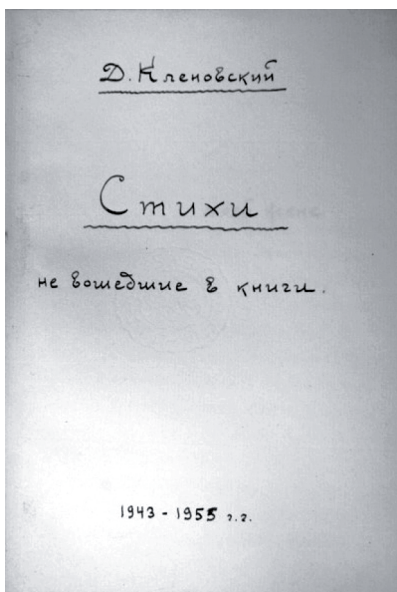 Д. Кленовский
Стихи
не вошедшие в книги.
1943 - 1955 г.г.